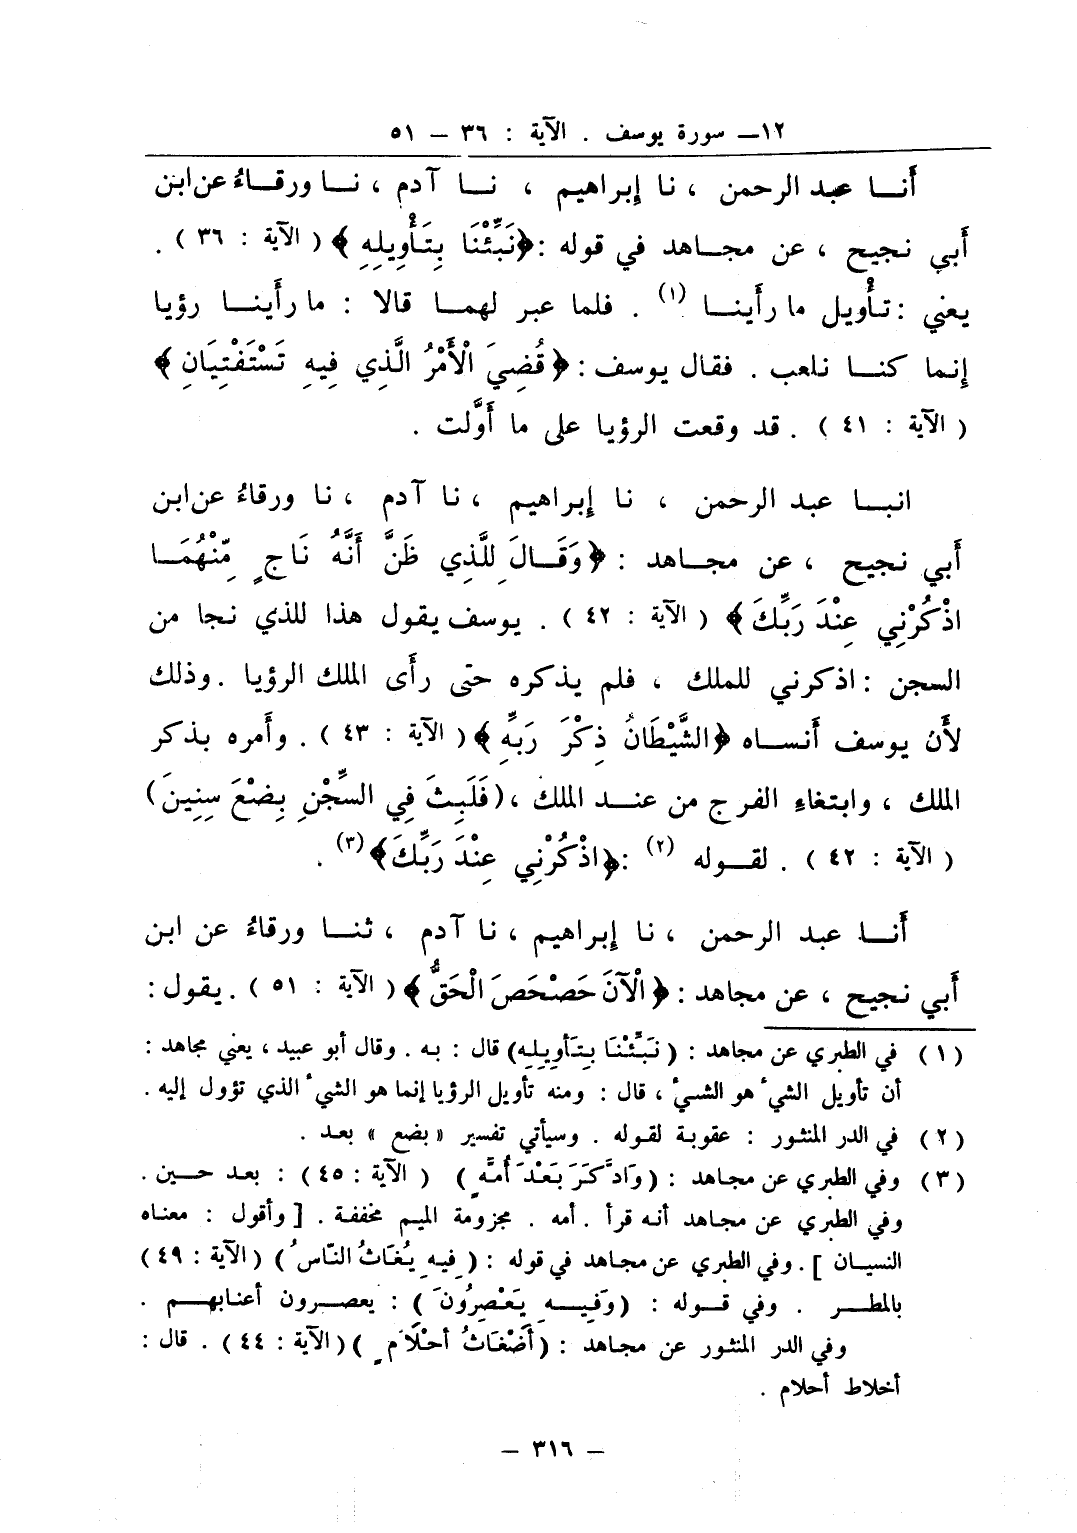 ١٢ــ سورة يوسف . الآية : ٣٦ – ٥١
أَنــا عبد الرحمن ، نا إبراهيم ، نــا آدم ، نــا ورقــاءُ عن ابن
أَبي نجيح ، عن مجــاهد في قوله : ﴿نَبِّئْنَا بِتَأْوِيلِهِ ﴾ ( الآية : ٣٦ ) .
يعني : تأْويل ما رأَينــا (١) . فلما عبر لهمــا قالا : ما رأَينــا رؤيا
إنما كنــا نلعب . فقال يوسف : ﴿ قُضِيَ الْأَمْرُ الَّذِي فِيهِ تَسْتَفْتِيَانِ ﴾
( الآية : ٤١ ) . قد وقعت الرؤيا على ما أَوَّلت .
انبــا عبد الرحمن ، نا إبراهيم ، نا آدم ، نا ورقاءُ عن ابن
أَبي نجيح ، عن مجــاهد : ﴿ وَقَــالَ لِلَّذِي ظَنَّ أَنَّهُ نَاجٍ مِّنْهُمَــا
اذْكُرْنِي عِنْدَ رَبِّكَ ﴾ ( الآية : ٤٢ ) . يوسف يقول هذا للذي نجا من
السجن : اذكرني للملك ، فلم يذكره حتى رأَى الملك الرؤيا . وذلك
لأَن يوسف أَنســاه ﴿الشَّيْطَانُ ذِكْرَ رَبِّهِ ﴾ ( الآية : ٤٣ ) . وأَمره بذكر
الملك ، وابتغاءِ الفرج من عنــد الملك ، (فَلَبِثَ فِي السِّجْنِ بِضْعَ سِنِينَ)
( الآية : ٤٢ ) . لقــوله (٢) : ﴿اذْكُرْنِي عِنْدَ رَبِّكَ﴾ (٣) .
أَنــا عبد الرحمن ، نا إبراهيم ، نا آدم ، ثنــا ورقاءُ عن ابن
أَبي نجيح ، عن مجاهد : ﴿ الْآنَ حَصْحَصَ الْحَقُّ ﴾ ( الآية : ٥١ ) . يقول :
(١) في الطبري عن مجاهد : ( نَبِّئْنَا بِتَأوِيلِهِ) قال : به . وقال أبو عبيد ، يعني مجاهد :
أن تأويل الشيء هو الشيء ، قال : ومنه تأويل الرؤيا إنما هو الشيء الذي تؤول إليه .
(٢) في الدر المنثور : عقوبة لقوله . وسيأتي تفسير « بضع » بعد .
(٣) وفي الطبري عن مجاهد : ( وَادَّكَرَ بَعْدَ أُمَّةٍ ) ( الآية : ٤٥ ) : بعد حــين .
وفي الطبري عن مجاهد أنه قرأ . أمه . مجزومة الميم مخففة . [ وأقول : معناه
النسيــان ] . وفي الطبري عن مجاهد في قوله : ( فِيهِ يُغَاثُ النَّاسُ ) ( الآية : ٤٩ )
بالمطــر . وفي قــوله : ( وَفِيــهِ يَعْصِرُونَ ) : يعصــرون أعنابهــم .
وفي الدر المنثور عن مجاهد : ( أَضْغَاثُ أحْلَامٍ )( الآية : ٤٤ ) . قال :
أخلاط أحلام .
– ٣١٦ –